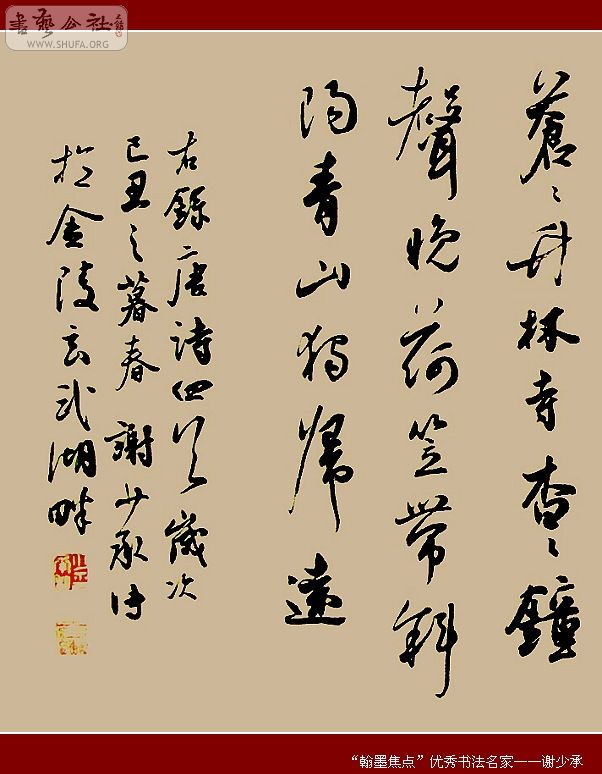 書藝公社
WWW.SHUFA.ORG
蒼〻竹林寺杳〻鐘
聲晚荷笠帶斜
陽青山獨歸遠
右錄唐詩四首歲次
己丑之暮春 謝少承書
於金陵玄武湖畔
“翰墨焦点”优秀书法名家——谢少承